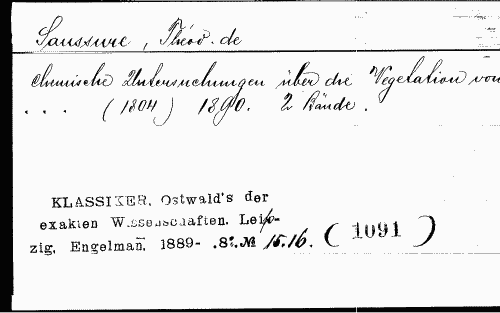 Saussure, Théod. de
Chemische Untersuchungen über die Vegetation von
. . . (1804) 1890. 2 Bände.
KLASSIKER, Ostwald's der
exakten Wissenschaften. Leip-
zig, Engelman̄, 1889- .8º.№ 15.16. (1091)